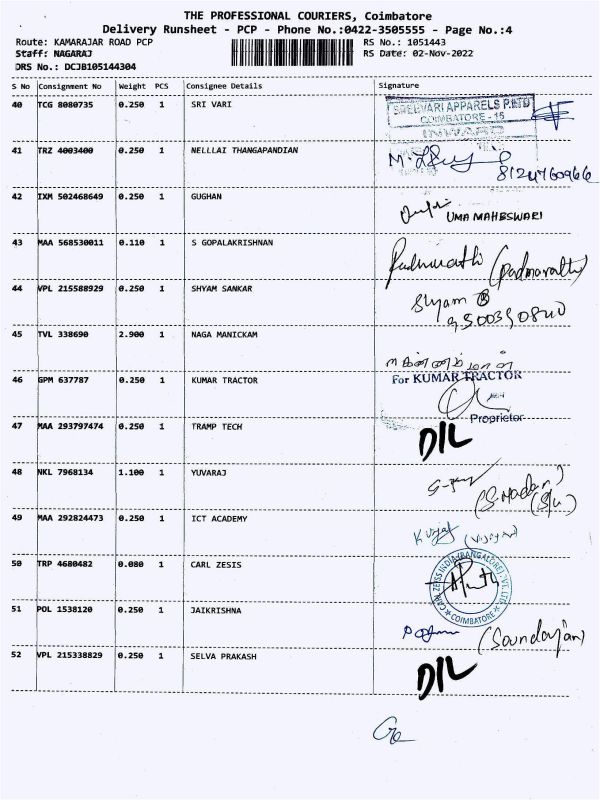 THE PROFESSIONAL COURIERS, Coimbatore
Delivery Runsheet - PCP - Phone No.:0422-3505555 - Page No.:4
Route: KAMARAJAR ROAD PCP RS No.: 1051443
Staff: NAGARAJ RS Date: 02-Nov-2022
DRS No.: DCJB105144304
S No Consignment No Weight PCS Consignee Details Signature
40 TCG 8080735 0.250 1 SRI VARI
SREEVARI APPARELS P.LTD
COIMBATORE - 15
INWARD
41 TRZ 4003400 0.250 1 NELLLAI THANGAPANDIAN
42 IXM 502468649 0.250 1 GUGHAN
UMA MAHESWARI
43 MAA 568530011 0.110 1 S GOPALAKRISHNAN
Padmavathi (Padmavathi)
44 VPL 215588929 0.250 1 SHYAM SANKAR
Shyam
45 TVL 338690 2.900 1 NAGA MANICKAM
46 GPM 637787 0.250 1 KUMAR TRACTOR
For KUMAR TRACTOR
Proprietor
47 MAA 293797474 0.250 1 TRAMP TECH
D/L
48 NKL 7968134 1.100 1 YUVARAJ
(S.Madan)
(S/o)
49 MAA 292824473 0.250 1 ICT ACADEMY
50 TRP 4680482 0.080 1 CARL ZESIS
CARL ZEISS INDIA (BANGALORE) PVT. LTD.
COIMBATORE
51 POL 1538120 0.250 1 JAIKRISHNA
52 VPL 215338829 0.250 1 SELVA PRAKASH
D/L